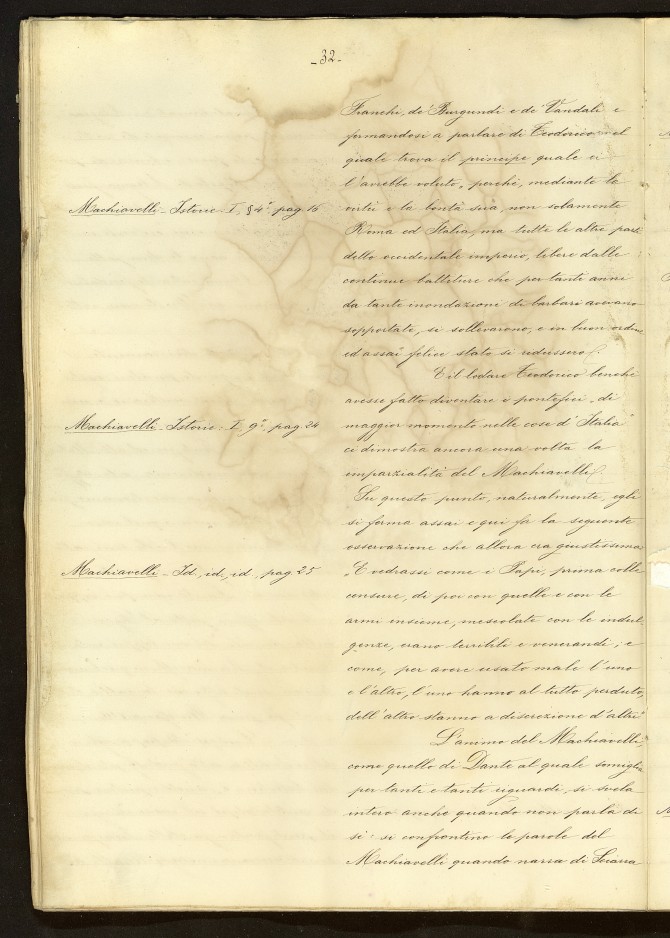 - 32 -
Franchi, de' Burgundi e de' Vandali e
fermandosi a parlare di Teodorico nel
quale trova il principe quale ei
l'avrebbe voluto, perché, mediante la
Machiavelli - Istorie - I, § 4°, pag. 16
virtù e la bontà sua, non solamente
Roma ed Italia, ma tutte le altre parti
dello occidentale imperio, libere dalle
continue battiture che per tanti anni
da tante inondazioni di barbari avevano
sopportate, si sollevarono, e in buon ordine
ed assai felice stato si ridussero.
E il lodare Teodorico benché
avesse fatto diventare i pontefici "di
Machiavelli - Istorie: I, 9°, pag. 24
maggior momento nelle cose d'Italia"
ci dimostra ancora una volta la
imparzialità del Machiavelli.
Su questo punto, naturalmente, egli
si ferma assai e qui fa la seguente
osservazione che allora era giustissima
Machiavelli - Id., id., id., pag. 25
"E vedrassi come i Papi, prima colle
censure, di poi con quelle e con le
armi insieme, mescolate con le indul-
genze, erano terribili e venerandi; e
come, per avere usato male l'uno
e l'altro, l'uno hanno al tutto perduto,
dell'altro stanno a discrezione d'altri"
L'animo del Machiavelli,
come quello di Dante al quale somiglia
per tanti e tanti riguardi, si svela
intero anche quando non parla di
sé: si confrontino le parole del
Machiavelli quando narra di Sciarra